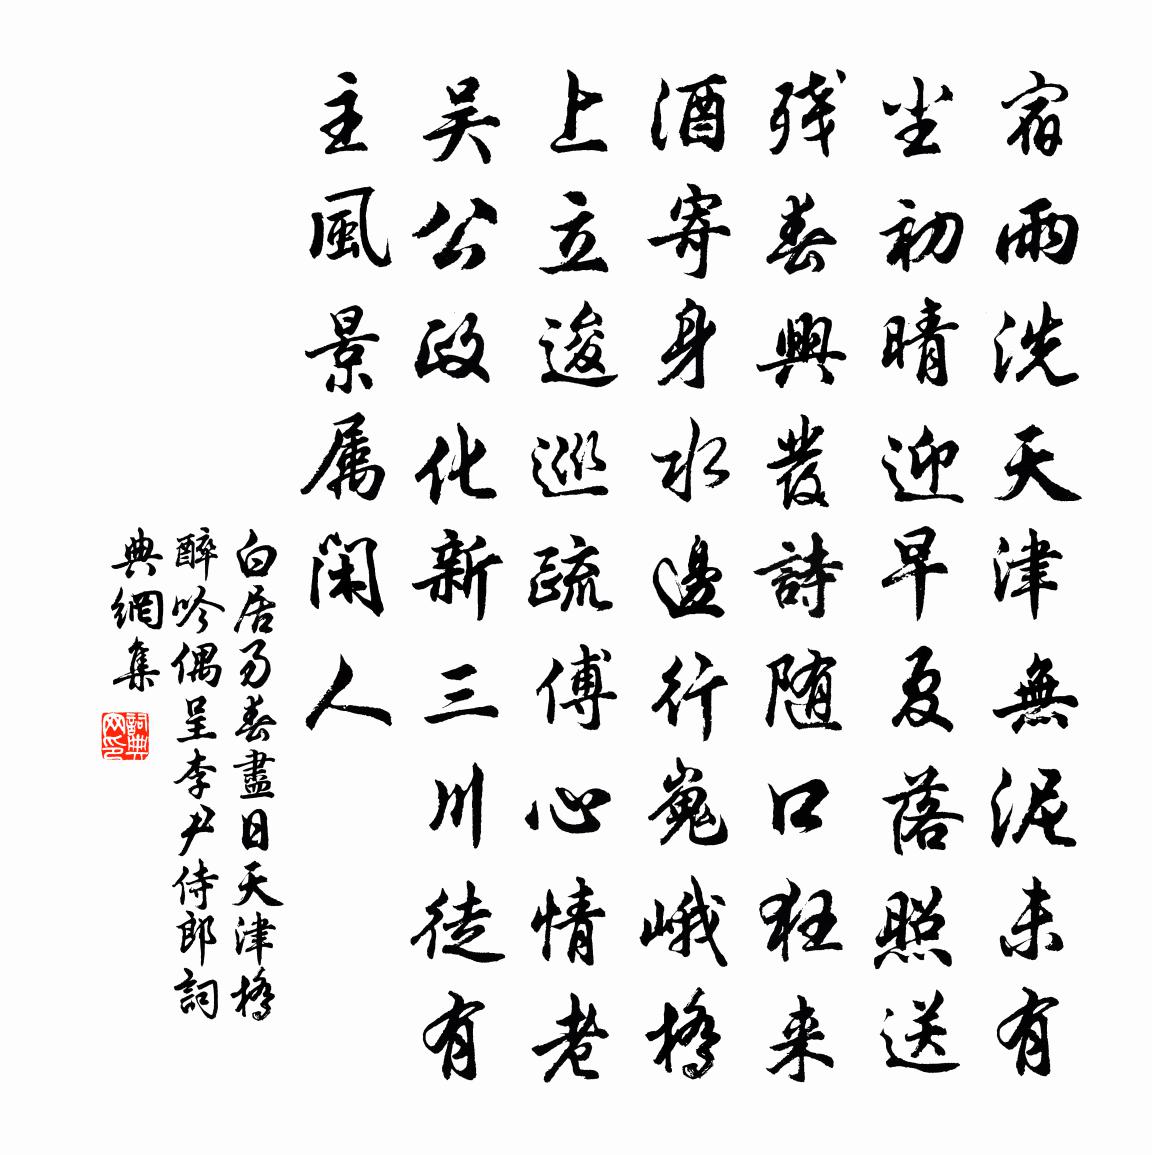 宿雨洗天津無泥未有
尘初晴迎早夏落照送
残春興發詩随口狂来
酒寄身水邊行嵬峨橋
上立逡巡疏傅心情老
吴公政化新三川徒有
主風景属闲人
白居易春盡日天津橋
醉吟偶呈李尹侍郎詞
典網集
詞典
网印